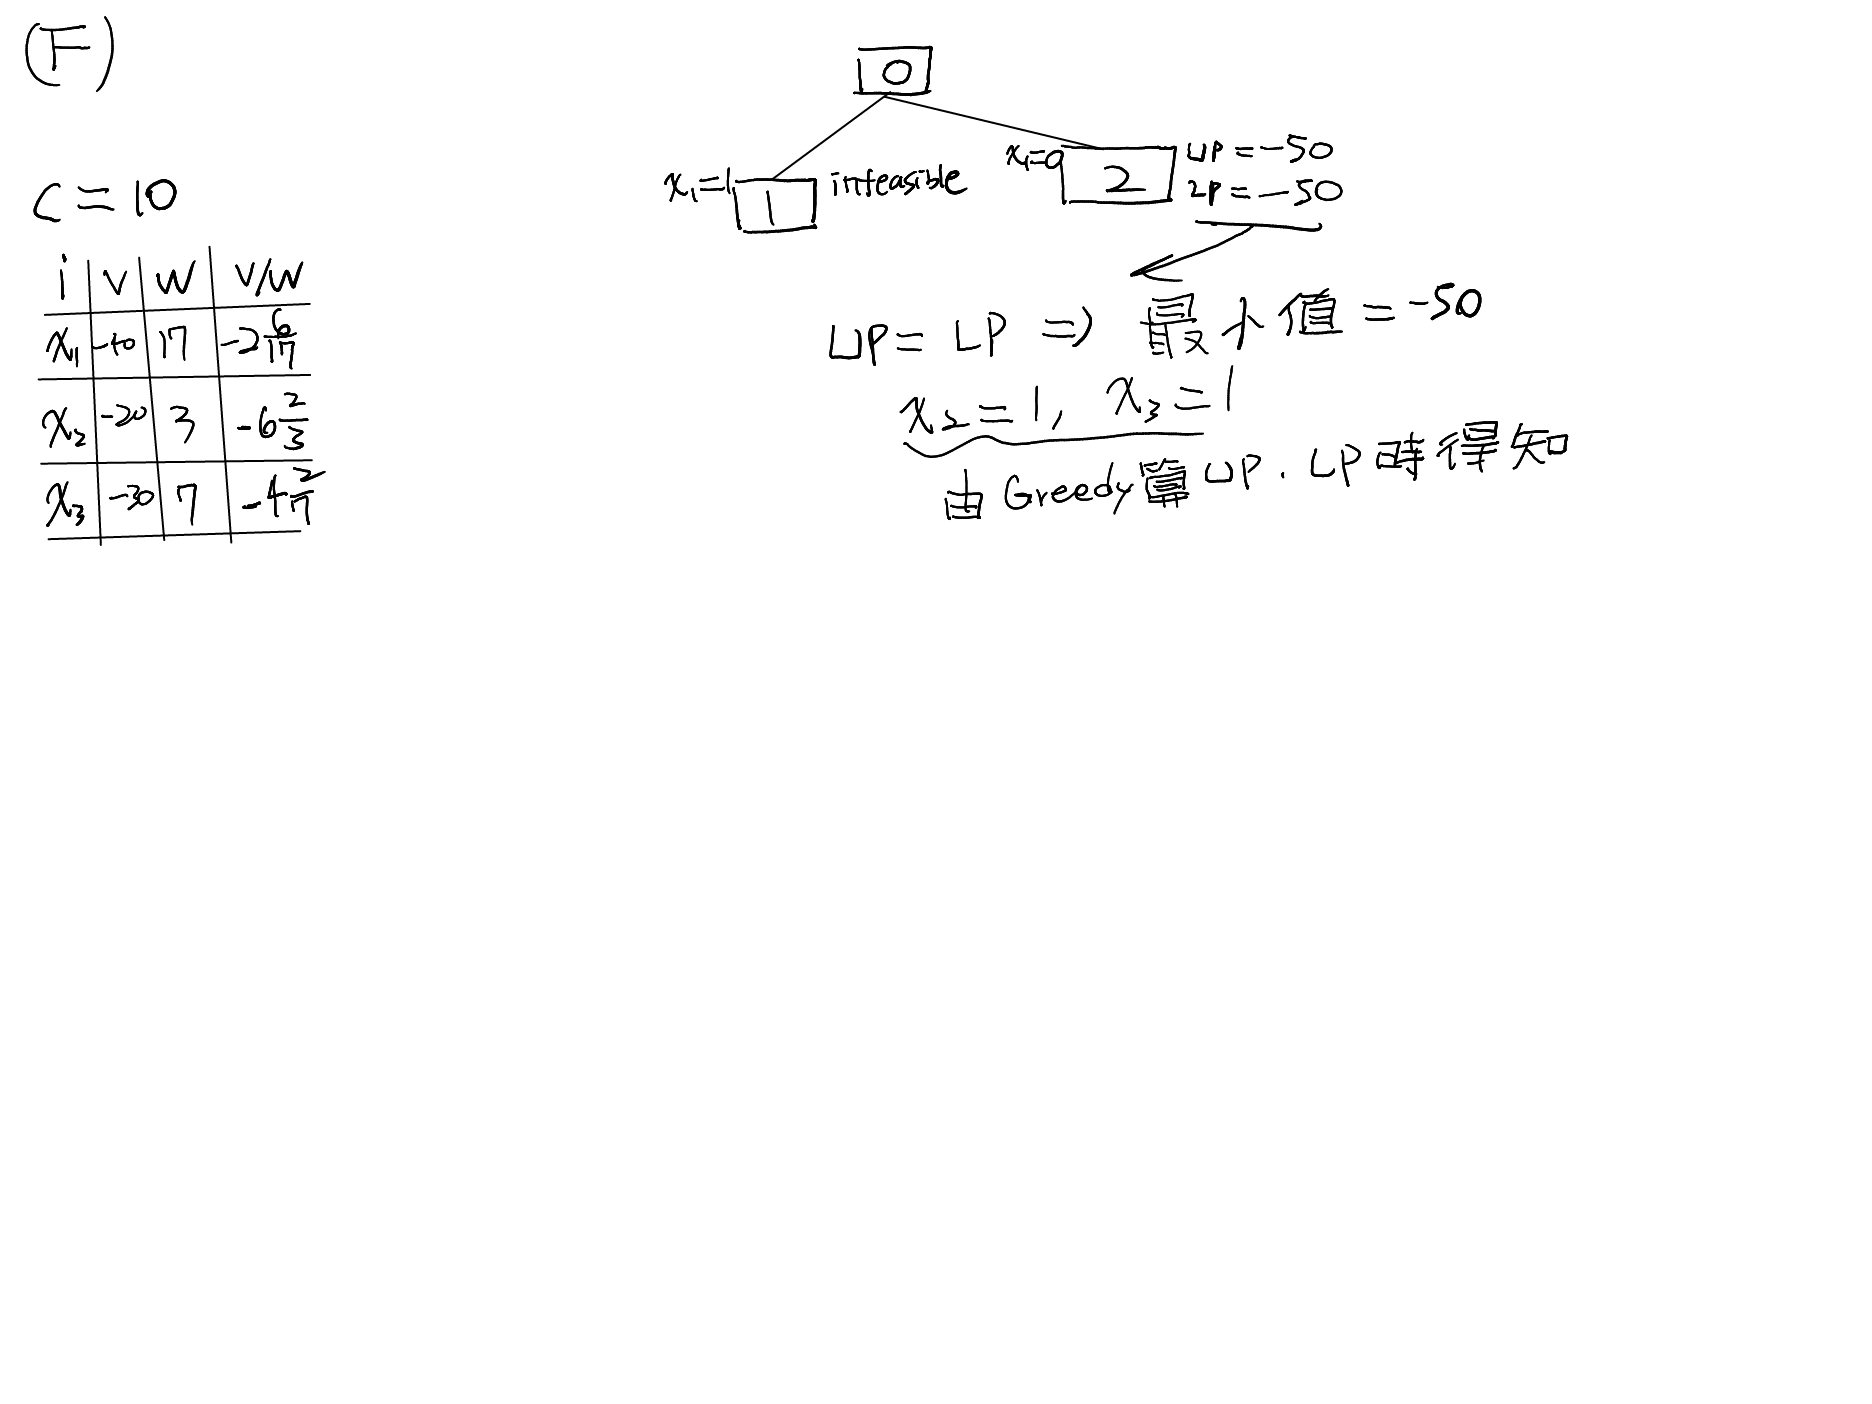 (F)
C = 10
i v w v/w
x₁ -40 17 -2 6/17
x₂ -20 3 -6 2/3
x₃ -30 7 -4 2/7
0
x₁=1 1 infeasible
x₁=0 2 UP = -50
LP = -50
UP = LP ⇒ 最小值 = -50
x₂ = 1, x₃ = 1
由 Greedy 算 UP. LP 時得知